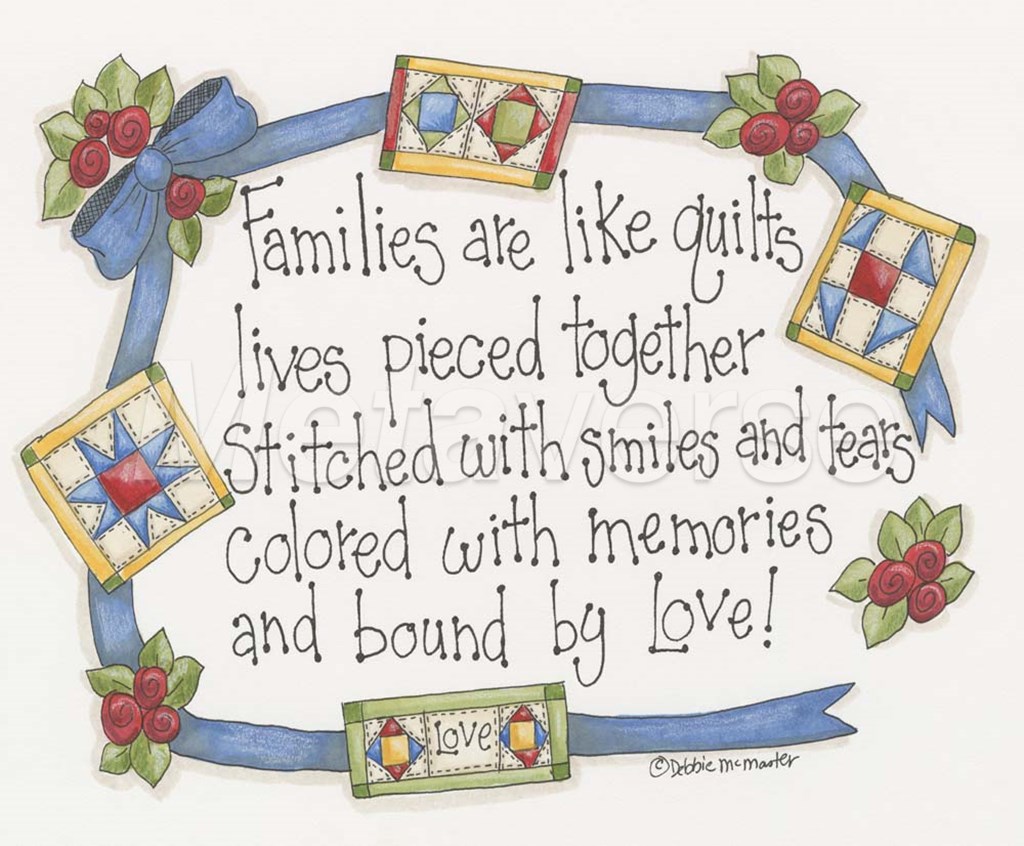 Families are like quilts
lives pieced together
Stitched with smiles and tears
colored with memories
and bound by Love!
Love
©Debbie McMaster
Metaverse